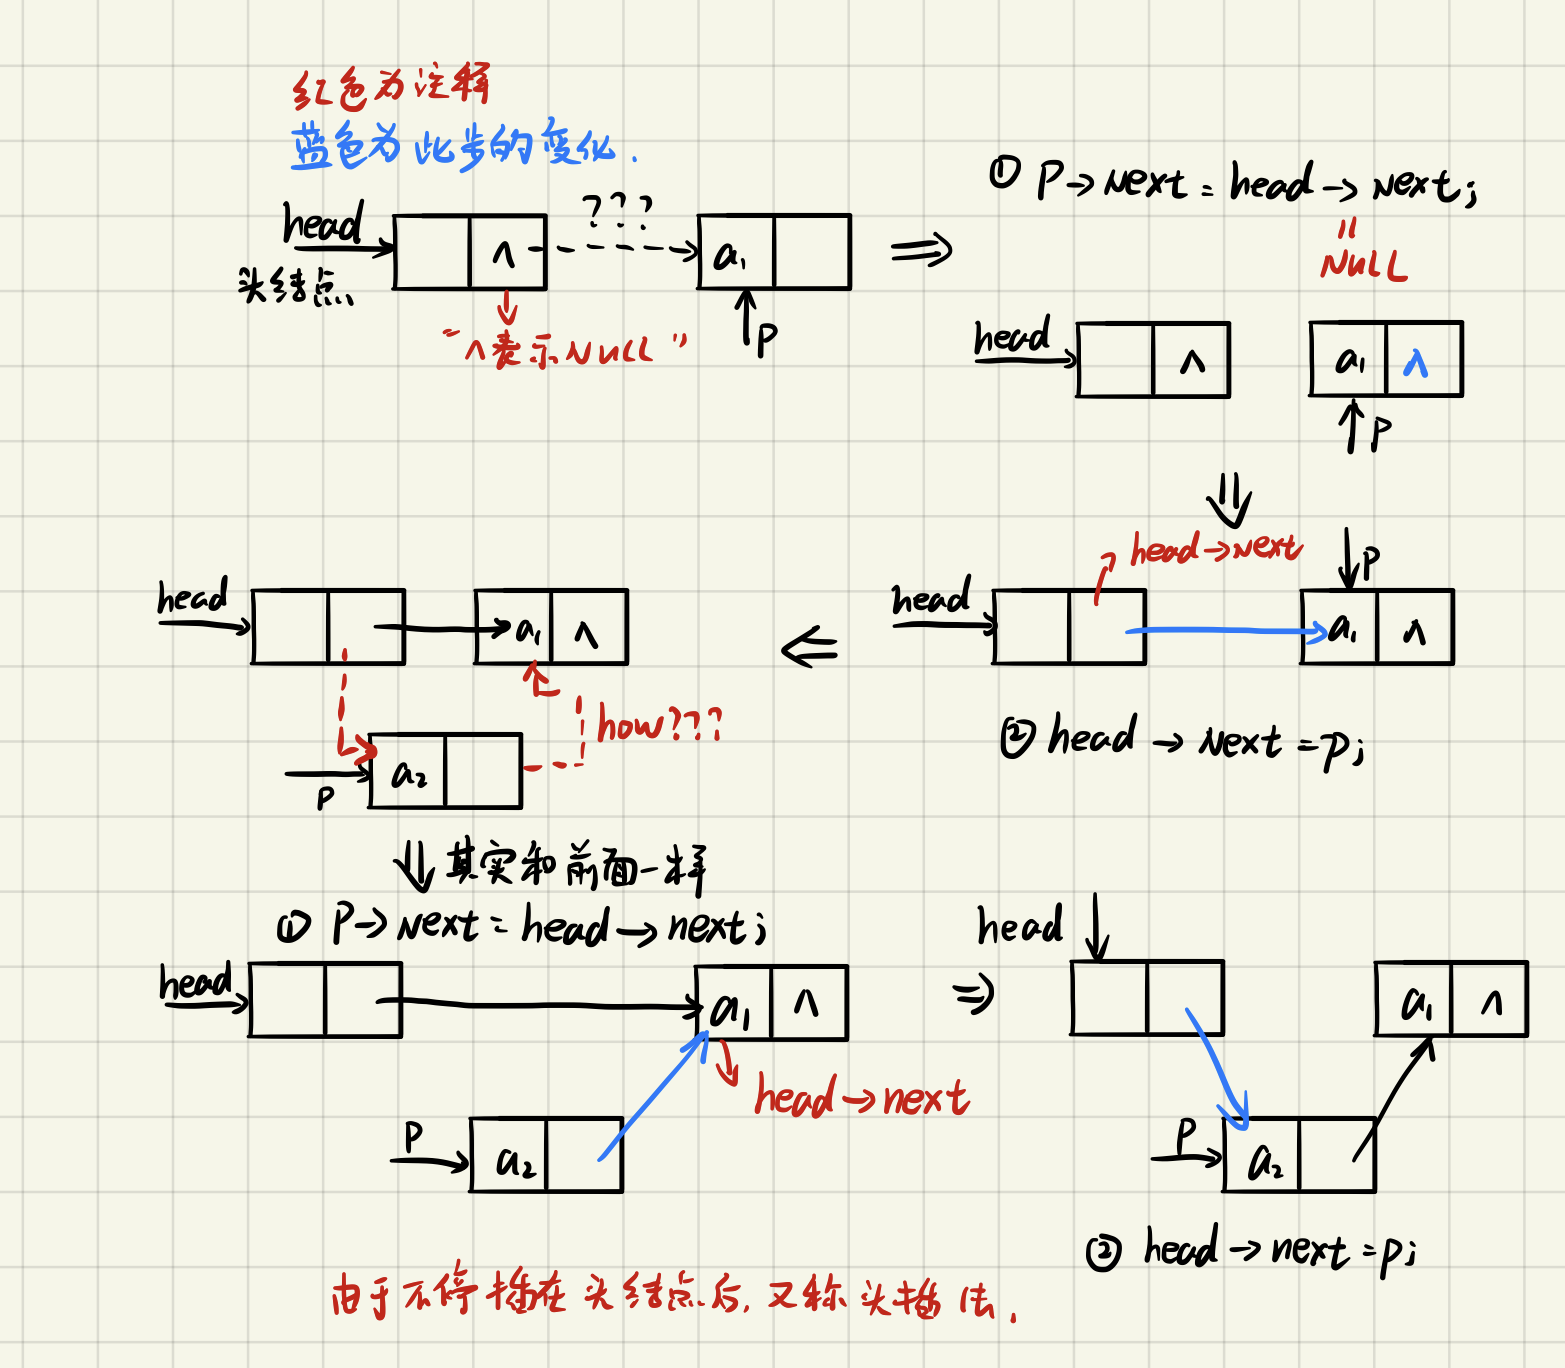 红色为注释
蓝色为此步的变化.
head
头结点
∧
???
a₁
p
"∧表示NULL"
① P→Next = head→Next;
=
NULL
head
∧
a₁
∧
P
head→Next
head
P
a₁
∧
② head→Next=p;
head
a₁
∧
how???
P
a₂
其实和前面一样
① P→Next = head→next;
head
a₁
∧
head→next
P
a₂
head
a₁
∧
P
a₂
② head→next=p;
由于不停插在头结点后,又称头插法.